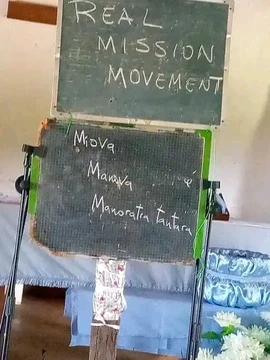 REAL
MISSION
MOVEMENT
Miova
Manova
Manoratra tantara